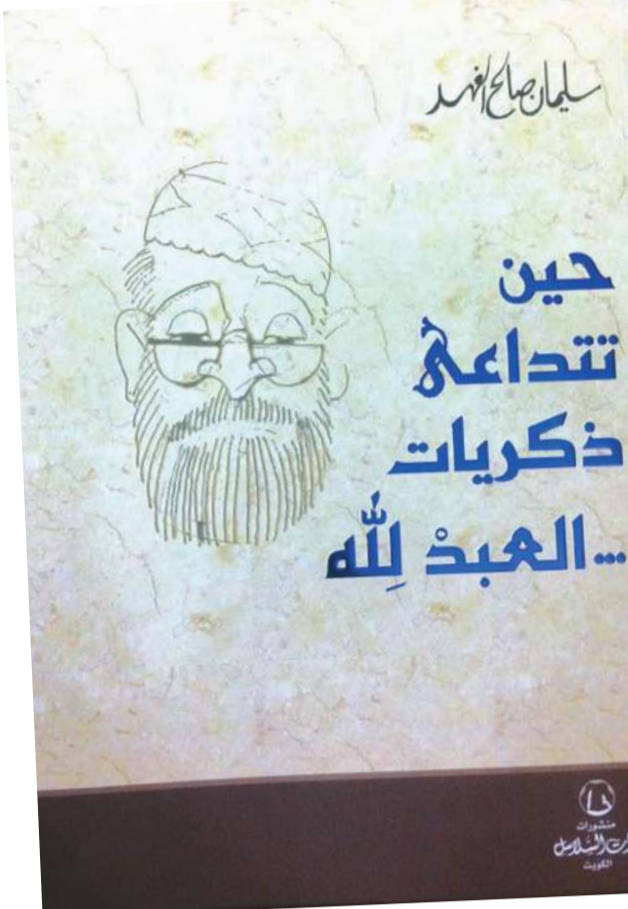 سليمان صالح الفهد
حين
تتداعى
ذكريات
...العبدْ لِلّٰه
منشورات
السلاسل
الكويت